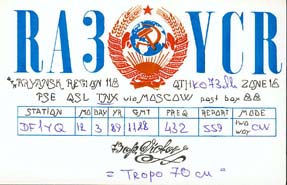 RA3 YCR
BRYANSK, REGION 118 QTH KO73dh ZONE 16
PSE QSL TNX via MOSCOW post box 88
STATION M D Y GMT FREQ REPORT MODE
DF1YQ 12 3 89 1128 432 559 TWO WAY CW
= TROPO 70 cm"